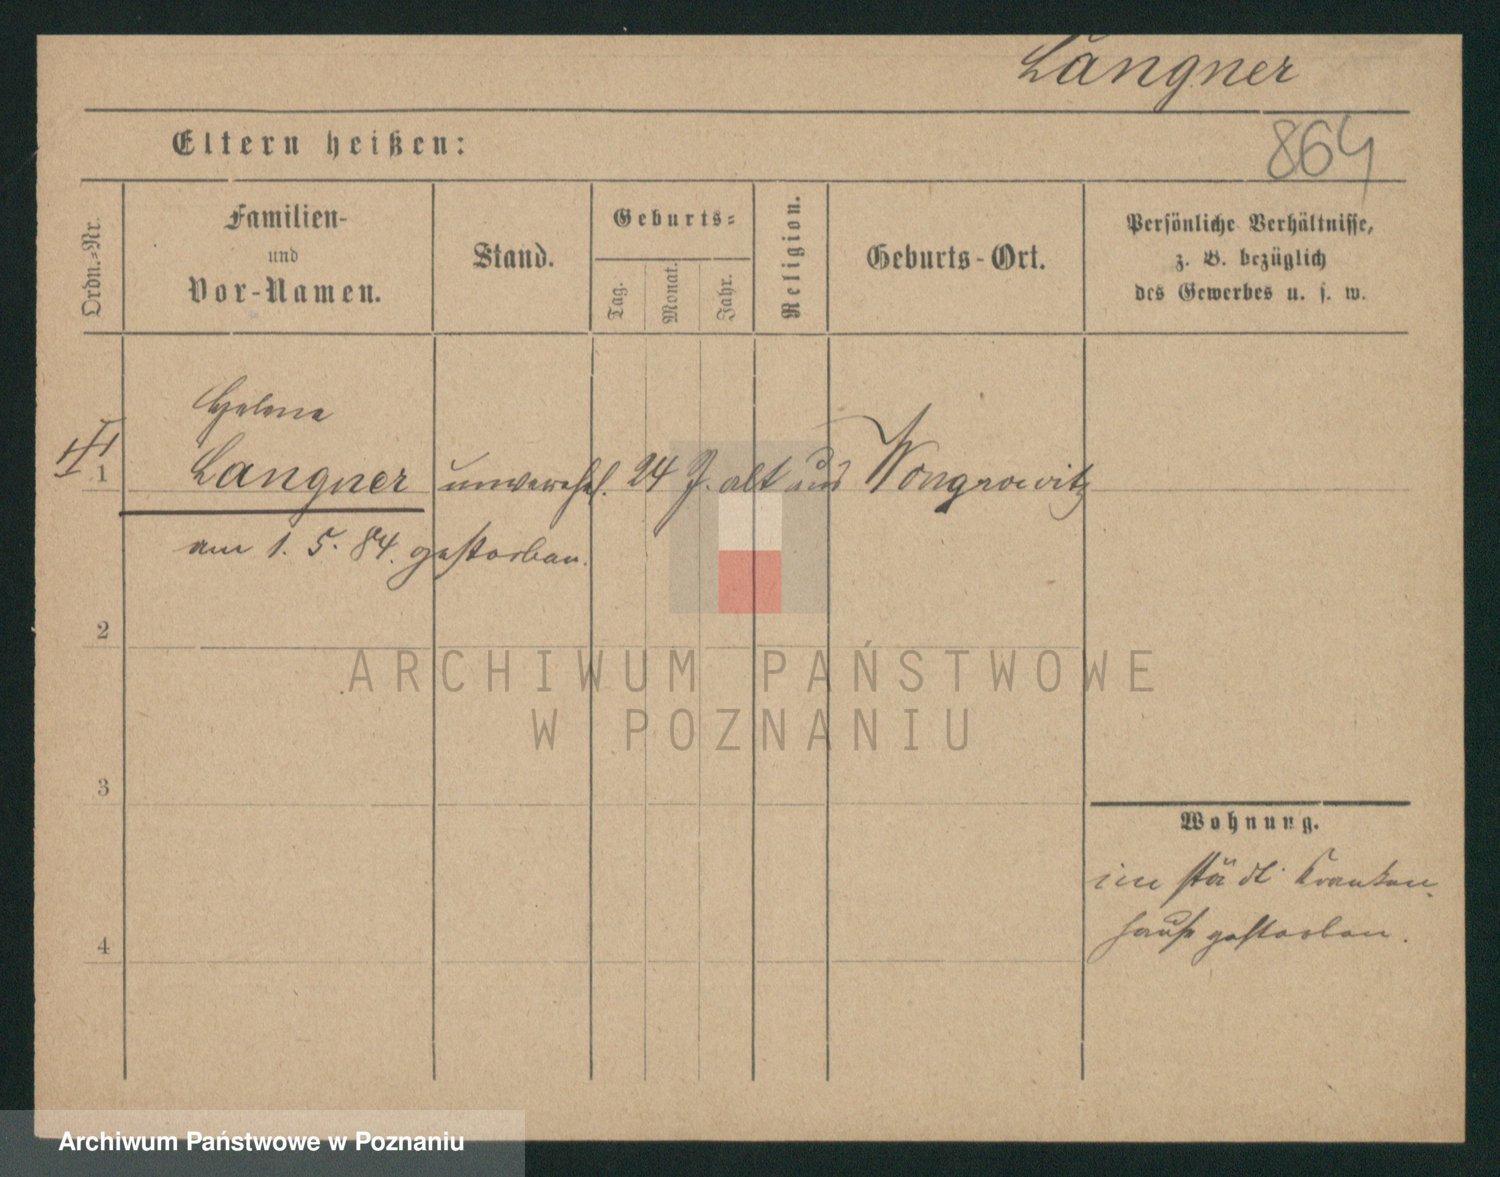 Langner
Eltern heißen:
864
Ordn.-Nr.
Familien-
und
Vor-Namen.
Stand.
Geburts-
Tag.
Monat.
Jahr.
Religion.
Geburts-Ort.
Persönliche Verhältnisse,
z. B. bezüglich
des Gewerbes u. s. w.
Helene
1 Langner unverehel. 24 J. alt aus Wongrowitz
am 1. 5. 84. gestorben.
2
ARCHIWUM PAŃSTWOWE
W POZNANIU
3
Wohnung.
im städt. Kranken-
hause gestorben.
4
Archiwum Państwowe w Poznaniu